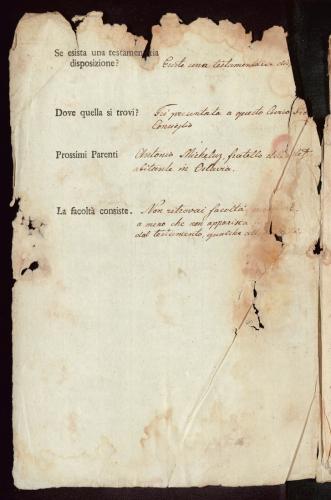 Se esista una testamentaria
disposizione? Existe una testamentaria dis
Dove quella si trovi? Fù presentata a questo
Consiglio
Prossimi Parenti Antonio fratello
abitante in
La facoltà consiste. Non ritrovai facoltà
a meno che non apparisca
dal testamento, qualche